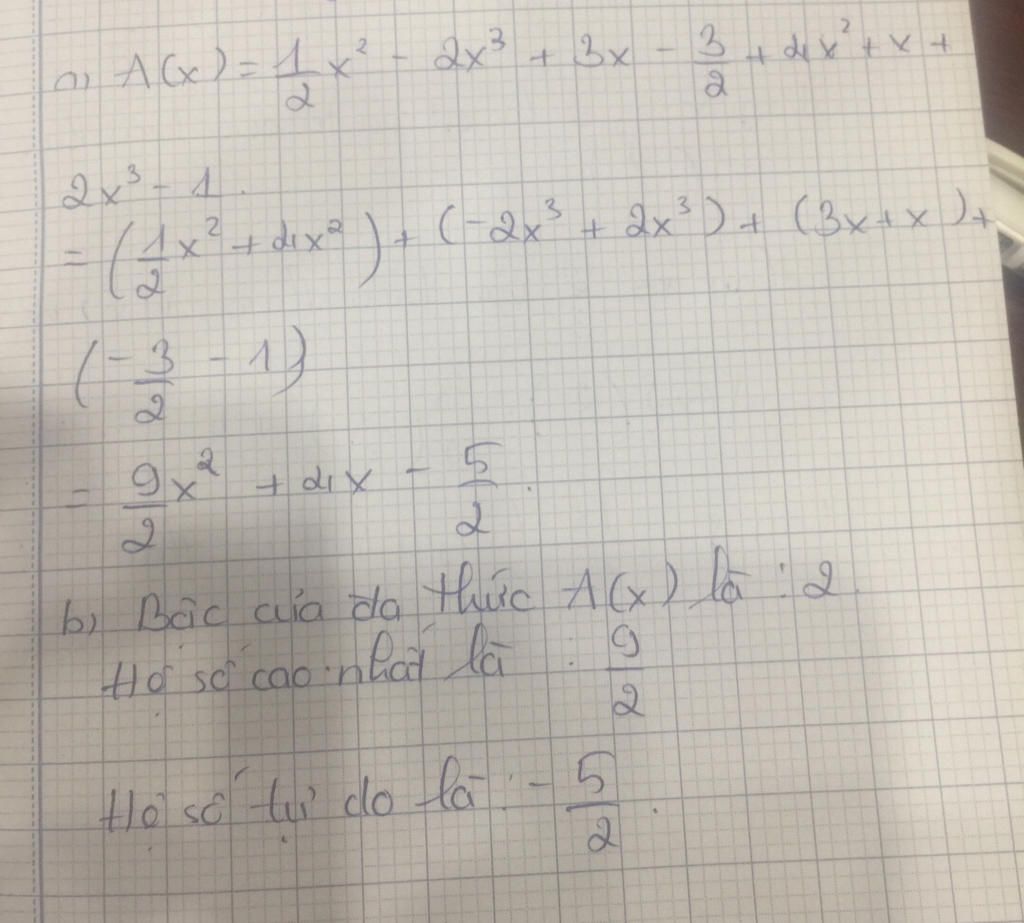 a) A(x) = 1/2 x² - 2x³ + 3x - 3/2 + 4x² + x +
2x³ - 1.
= (1/2 x² + 4x²) + (-2x³ + 2x³) + (3x + x) +
(-3/2 - 1)
= 9/2 x² + 4x - 5/2.
b) Bậc của đa thức A(x) là : 2
Hệ số cao nhất là : 9/2
Hệ số tự do là : - 5/2.